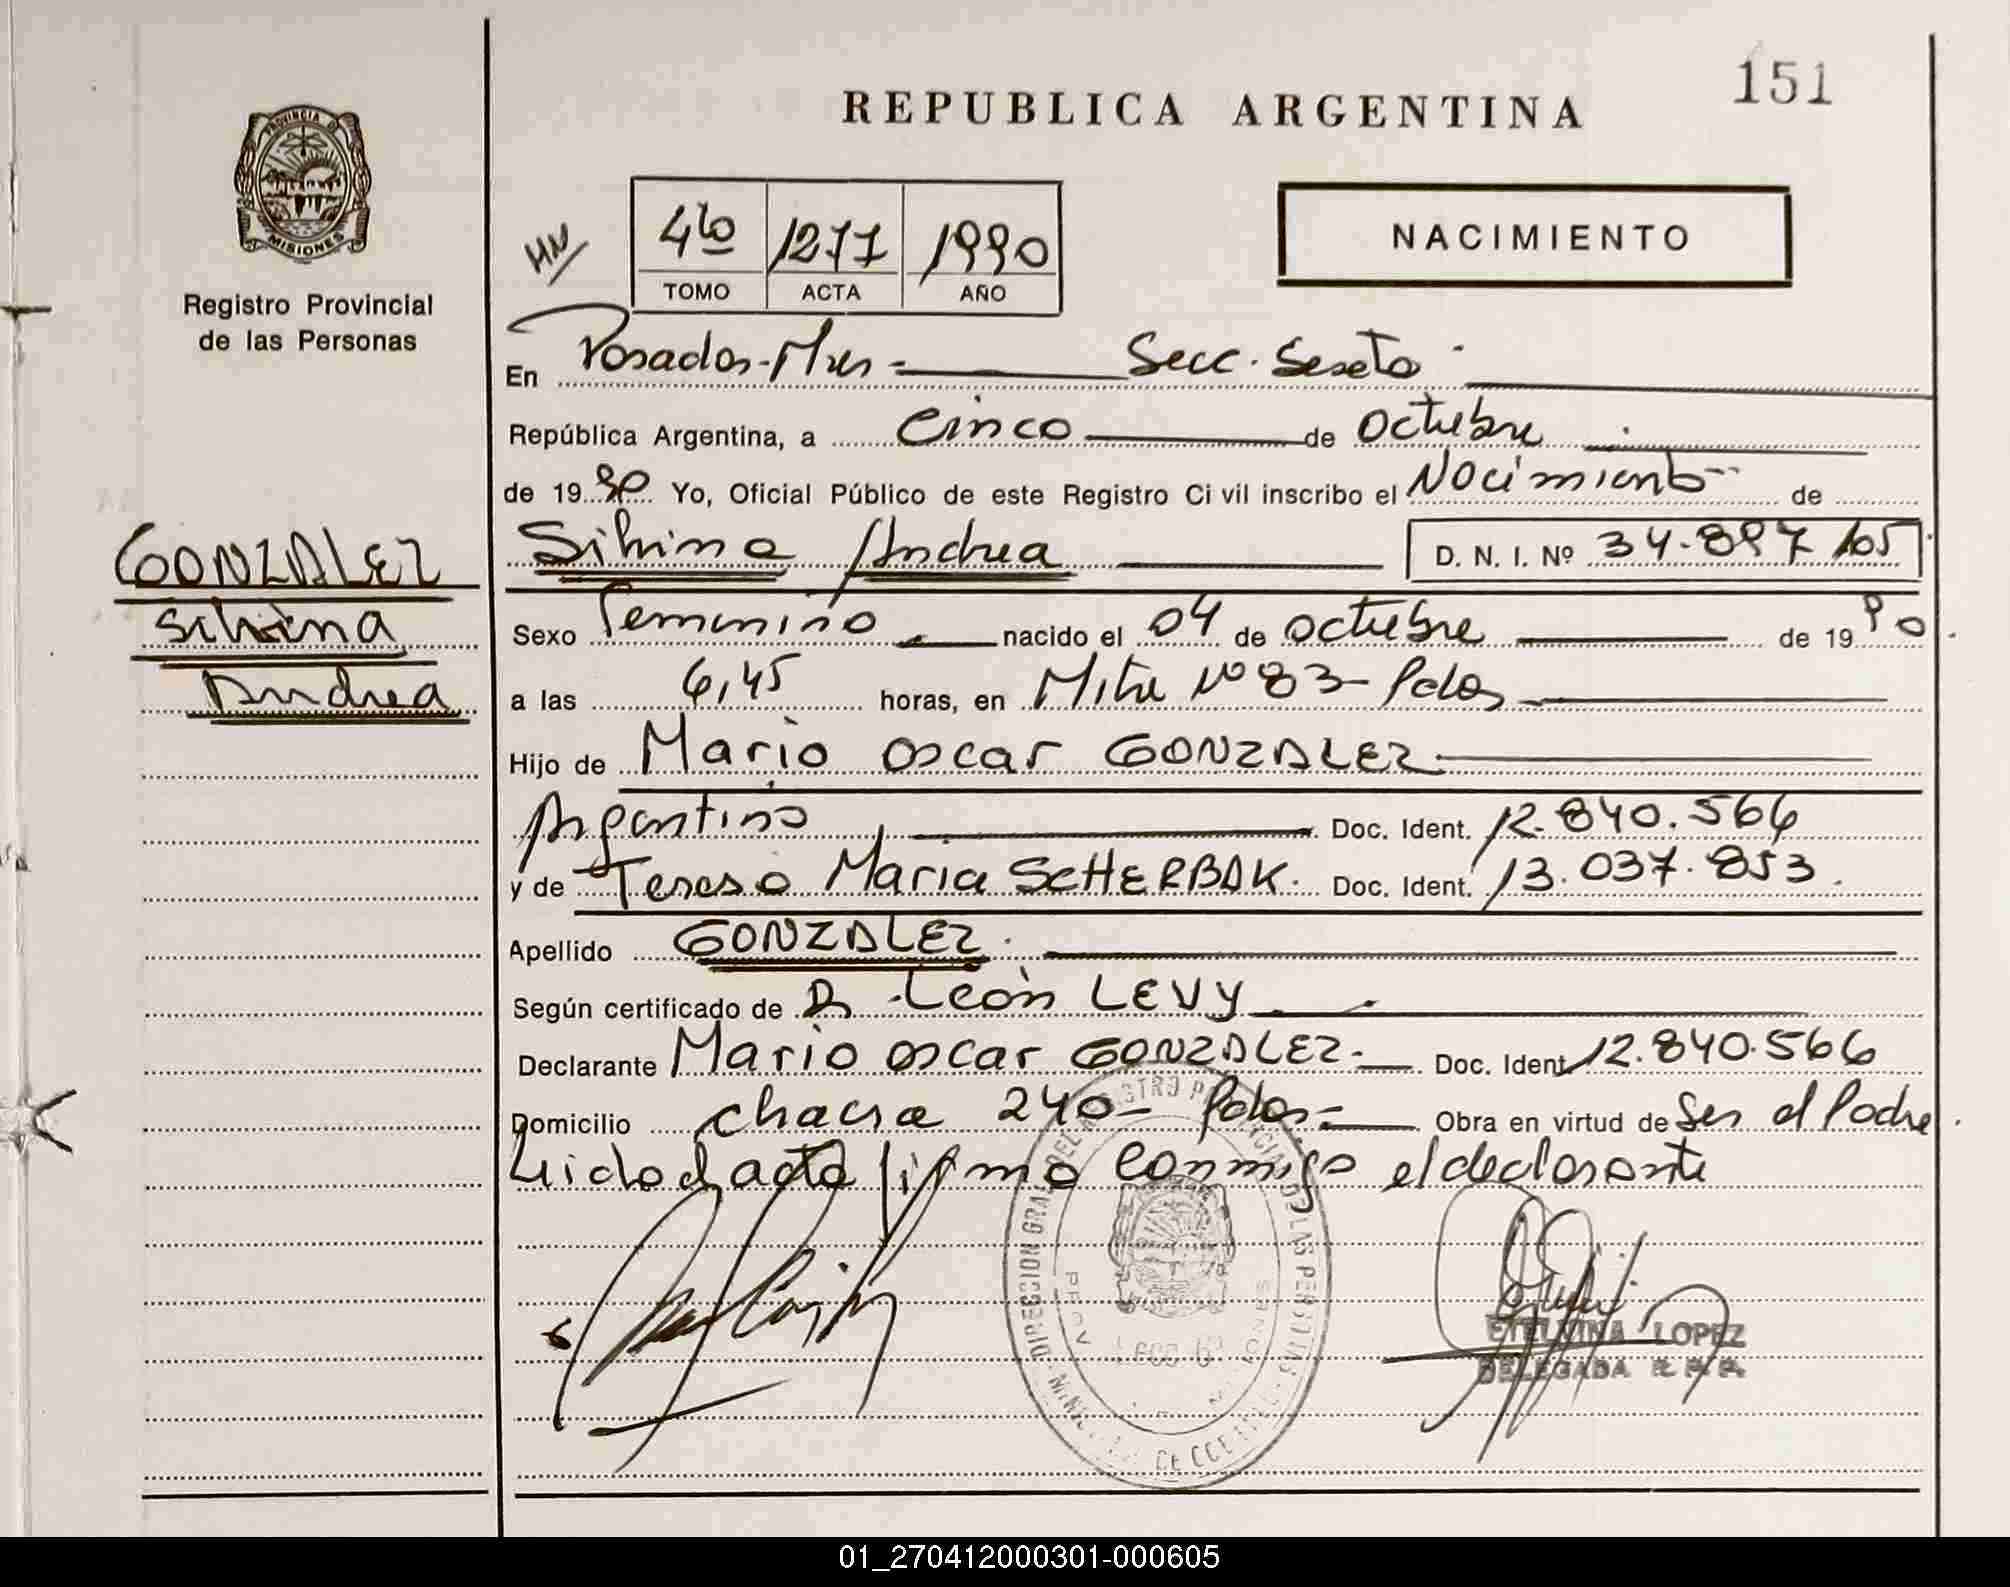 151
REPUBLICA ARGENTINA
PROVINCIA DE
MISIONES
Registro Provincial
de las Personas
HN
4to 1277 1990
TOMO ACTA AÑO
NACIMIENTO
En Posadas-Mnes - Secc. Sexta -
República Argentina, a Cinco de Octubre
de 1990 Yo, Oficial Público de este Registro Ci vil inscribo el Nacimiento de
Silvina Andrea D. N. I. Nº 34.897.105
GONZALEZ
Silvina
Andrea
Sexo Femenino nacido el 04 de octubre de 1990
a las 6,45 horas, en Mitre Nº 83- Pdas
Hijo de Mario Oscar GONZALEZ
Argentino Doc. Ident. 12.840.566
y de Teresa Maria SCHERBAK. Doc. Ident. 13.037.853.
Apellido GONZALEZ.
Según certificado de Dr. León LEVY
Declarante Mario Oscar GONZALEZ.- Doc. Ident. 12.840.566
Domicilio chacra 240- Pdas.- Obra en virtud de Ser el Padre
Leido el acta firma conmigo el declarante
DIRECCION GRAL. DEL REGISTRO PROVINCIAL DE LAS PERSONAS
ETELVINA LOPEZ
DELEGADA R.P.P.
01_270412000301-000605